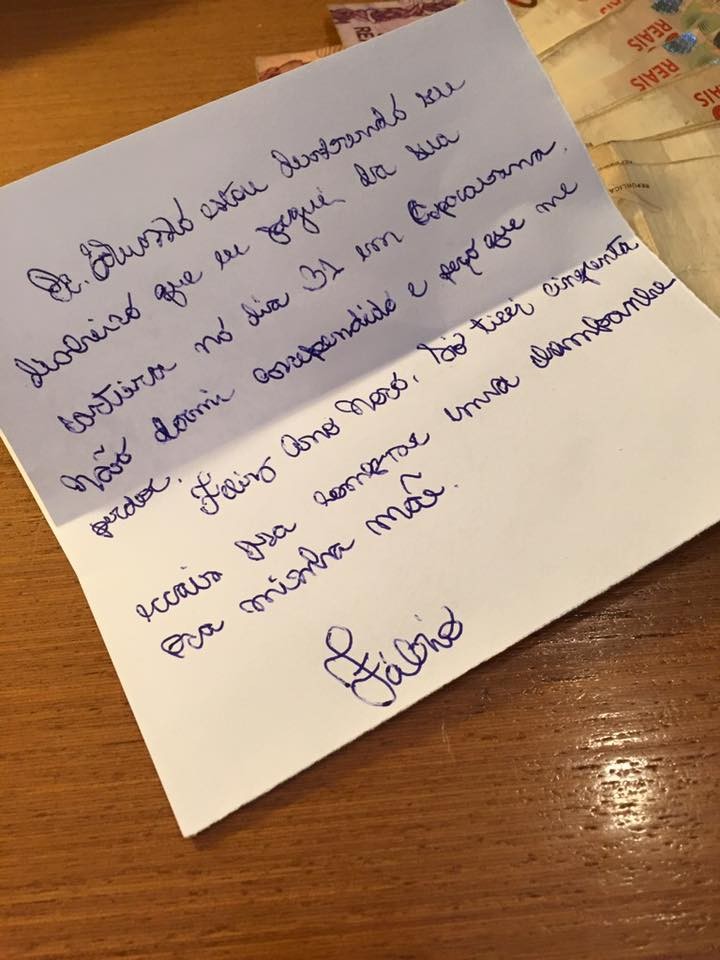 REAIS
REAIS
REAIS
REPÚBLICA
Dr. Eduardo estou devolvendo seu
dinheiro que eu peguei da sua
carteira no dia 31 em Copacabana.
Não dormi arrependido e peço que me
perdoe. Feliz Ano Novo. Só tirei cinquenta
reais pra comprar uma champanhe
pra minha mãe.
Fábio